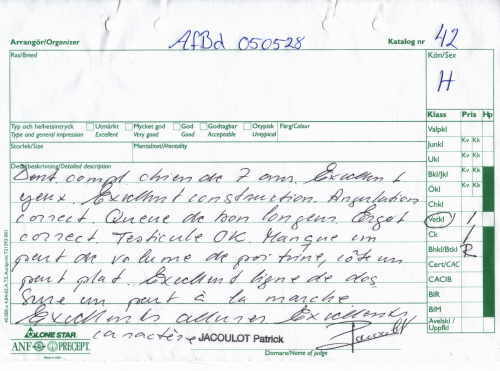 Arrangör/Organizer AfBd 050528 Katalog nr 42
Ras/Breed Kön/Sex
H
Klass Pris Hp
Valpkl
Junkl Kv Kk
Ukl
Typ och helhetsintryck Utmärkt Mycket god God Godtagbar Otypisk Färg/Colour
Type and general impression Excellent Very good Good Acceptable Untypical
Storlek/Size Mentalitet/Mentality
Detaljbeskrivning/Detailed description
Bkl/Jkl Kv Kk
Ökl
Chkl
Vetkl 1
Ck 1
Bhkl/Btkl R
Cert/CAC
CACIB
BIR
BIM
Avelskl / Uppfkl
Dent compl chien de 7 ans. Excellent
yeux. Excellent construction. Angulation
correct. Queue de bon longeur. Ergot
correct. Testicule OK. Manque un
peut de volume de poitrine, côte un
peut plat. Excellent ligne de dos
un peut à la marche
Excellents allures Excellents
caractère JACOULOT Patrick
LONE STAR
ANF PRECEPT
Domare/Name of judge